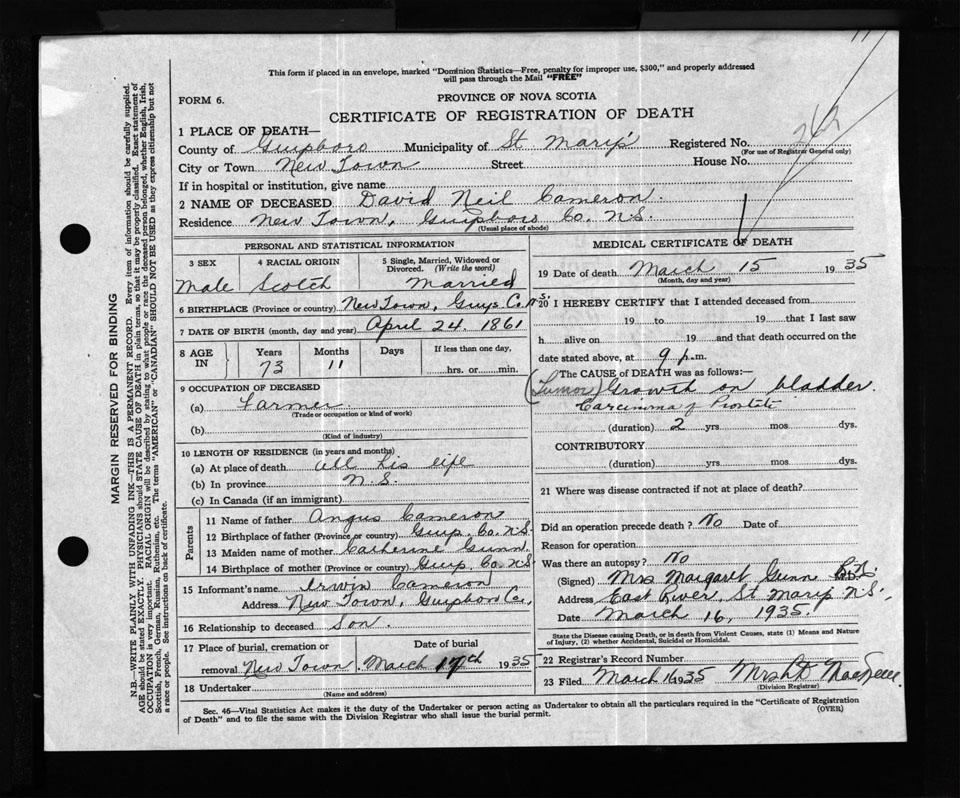 This form if placed in an envelope, marked "Dominion Statistics—Free, penalty for improper use, $300," and properly addressed
will pass through the Mail "FREE"
FORM 6.
PROVINCE OF NOVA SCOTIA
CERTIFICATE OF REGISTRATION OF DEATH
1 PLACE OF DEATH—
County of Guysboro Municipality of St Mary's Registered No.
(For use of Registrar General only)
City or Town New Town Street House No.
If in hospital or institution, give name
2 NAME OF DECEASED David Neil Cameron
Residence New Town, Guysboro Co. N.S.
(Usual place of abode)
PERSONAL AND STATISTICAL INFORMATION
3 SEX 4 RACIAL ORIGIN 5 Single, Married, Widowed or Divorced. (Write the word)
Male Scotch Married
6 BIRTHPLACE (Province or country) New Town, Guys. Co. N.S.
7 DATE OF BIRTH (month, day and year) April 24. 1861
8 AGE IN Years Months Days If less than one day,
73 11 hrs. or min.
9 OCCUPATION OF DECEASED
(a) Farmer
(Trade or occupation or kind of work)
(b)
(Kind of industry)
10 LENGTH OF RESIDENCE (in years and months)
(a) At place of death all his life
(b) In province N.S.
(c) In Canada (if an immigrant)
Parents
11 Name of father Angus Cameron
12 Birthplace of father (Province or country) Guys. Co. N.S.
13 Maiden name of mother Catherine Gunn
14 Birthplace of mother (Province or country) Guys. Co. N.S.
15 Informant's name Irwin Cameron
Address New Town, Guysboro Co.,
16 Relationship to deceased Son.
17 Place of burial, cremation or Date of burial
removal New Town. March 17th 1935
18 Undertaker
(Name and address)
MEDICAL CERTIFICATE OF DEATH
19 Date of death March 15 1935
(Month, day and year)
20 I HEREBY CERTIFY that I attended deceased from
19 to 19 that I last saw
h alive on 19 and that death occurred on the
date stated above, at 9 p.m.
The CAUSE of DEATH was as follows:
(Tumor) Growth on bladder.
Carcinoma of Prostate
(duration) 2 yrs mos dys.
CONTRIBUTORY
(duration) yrs. mos. dys.
21 Where was disease contracted if not at place of death?
Did an operation precede death? No Date of
Reason for operation
Was there an autopsy? No
(Signed) Mrs Margaret Gunn
Address East River, St Marys N.S.,
Date March 16, 1935.
State the Disease causing Death, or in death from Violent Causes, state (1) Means and Nature
of Injury, (2) whether Accidental, Suicidal or Homicidal.
22 Registrar's Record Number
23 Filed March 16 1935
(Division Registrar)
Sec. 46—Vital Statistics Act makes it the duty of the Undertaker or person acting as Undertaker to obtain all the particulars required in the "Certificate of Registration
of Death" and to file the same with the Division Registrar who shall issue the burial permit.
(OVER)
MARGIN RESERVED FOR BINDING
N.B.—WRITE PLAINLY WITH UNFADING INK—THIS IS A PERMANENT RECORD. Every item of information should be carefully supplied.
AGE should be stated EXACTLY. PHYSICIANS should STATE CAUSE OF DEATH in plain terms, so that it may be properly classified. Exact statement of
OCCUPATION is very important. RACIAL ORIGIN will be described by stating to what people or race the deceased person belonged, whether English, Irish,
Scottish, French, German, Russian, Ruthenian, etc. The terms "AMERICAN" or "CANADIAN" SHOULD NOT BE USED as they express citizenship but not
a race or people. See instructions on back of certificate.